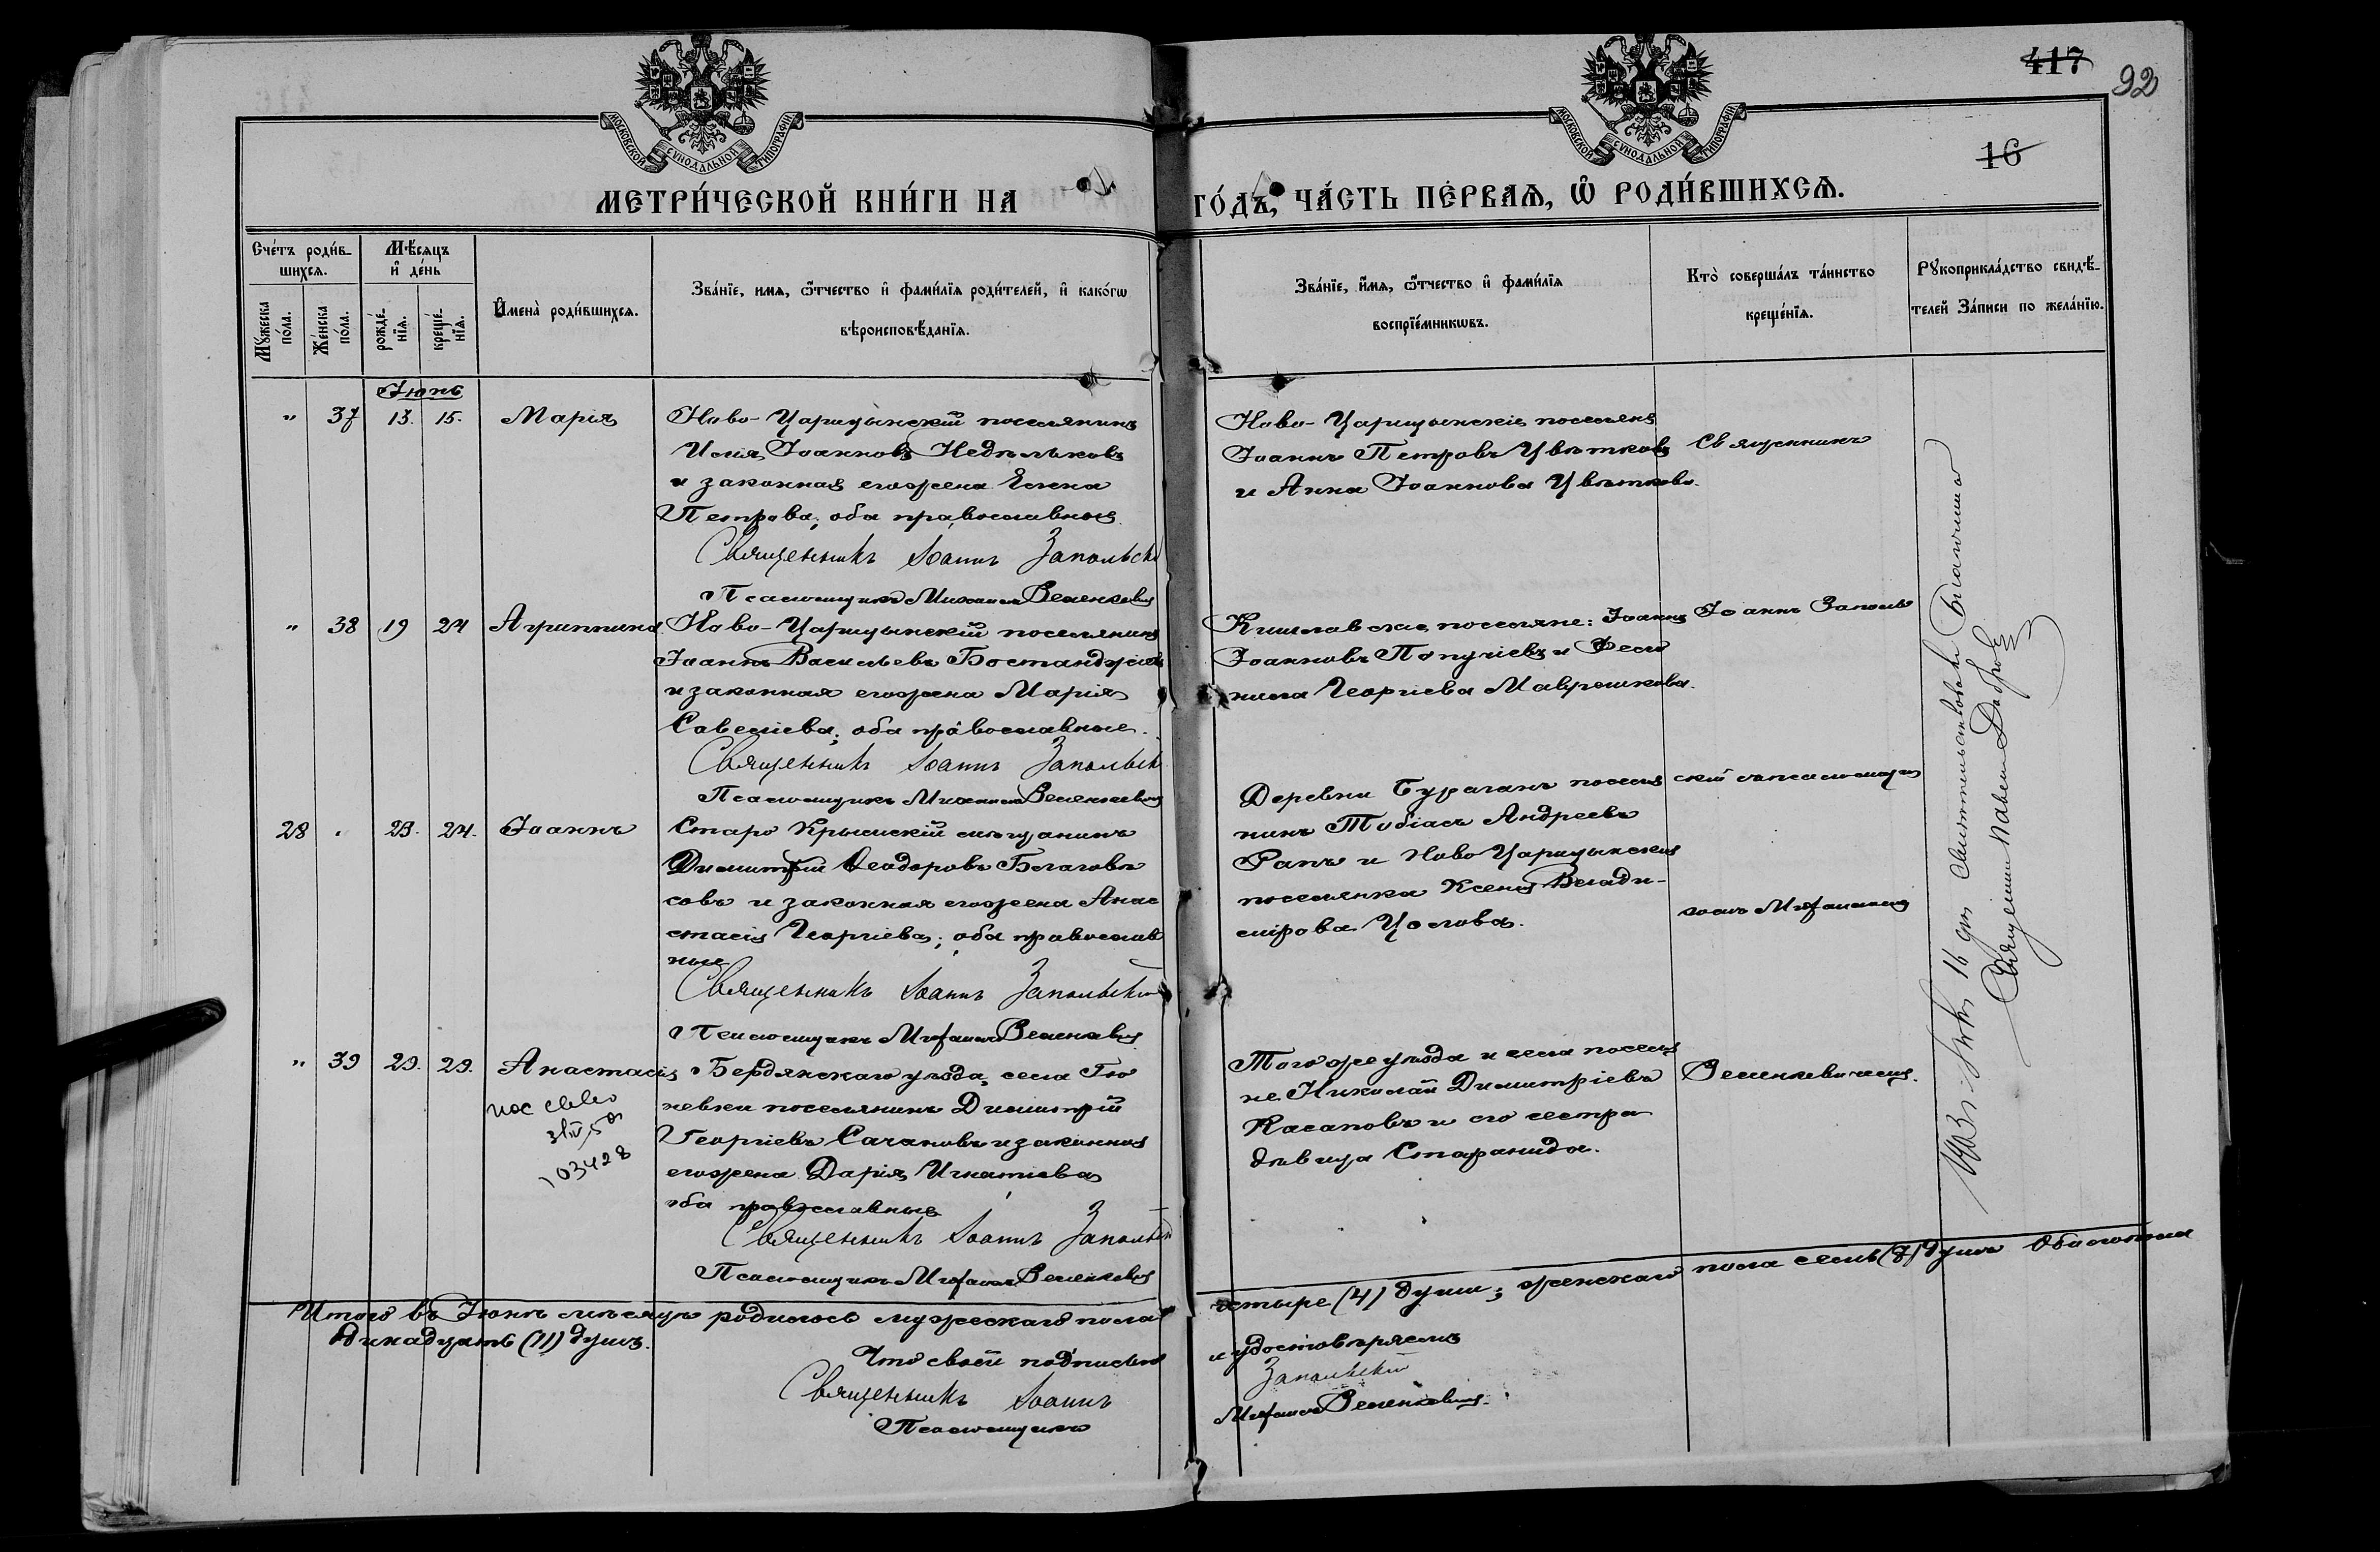 417
92
16
МОСКОВСКОЙ СѴНОДАЛЬНОЙ ТИПОГРАФІИ
МОСКОВСКОЙ СѴНОДАЛЬНОЙ ТИПОГРАФІИ
МЕТРИ́ЧЕСКОЙ КНИ́ГИ НА ГО́ДЪ, ЧА́СТЬ ПЕ́РВАѦ, Ѡ҆ РОДИ́ВШИХСѦ.
Сче́тъ роди́в-
шихсѧ.
Мѣ́сѧцъ
и҆ де́нь
Мꙋ́жеска по́ла.
Же́нска по́ла.
рожде́-
нїѧ.
креще́-
нїѧ.
И҆мена̀ роди́вшихсѧ.
Зва́нїе, и́мѧ, ѻ҆́тчество и҆ фами́лїѧ роди́телей, и҆ како́гѡ
вѣроисповѣ́данїѧ.
Зва́нїе, и҆́мѧ, ѻ҆́тчество и҆ фами́лїѧ
воспрїе́мникѡвъ.
Кто̀ соверша́лъ та́инство
креще́нїѧ.
Рꙋкоприкла́дство свидѣ́-
телей За́писи по жела́нїю.
Іюнь
" 37 13. 15. Марія
Ново-Царицынскій поселянинъ
Илія Іоанновъ Недѣльковъ
и законная его жена Елена
Петрова; оба православные.
Священникъ Іоаннъ Запольскі
Псаломщикъ Михаилъ Веленкевич
Ново-Царицынскіе поселяне
Іоаннъ Петровъ Цвѣтковъ
и Анна Іоаннова Цвѣткова.
Священникъ
" 38 19 24 Агриппина
Ново-Царицынскій поселянинъ
Іоаннъ Васильевъ Бостанджіевъ
и законная его жена Марія
Савеліева; оба православные.
Священникъ Іоаннъ Запольскі
Псаломщикъ Михаилъ Веленкевич
Кишлавскіе поселяне: Іоаннъ
Іоанновъ Попучіевъ и
Георгіева Маврошкова.
Іоаннъ Заполь
28 " 23. 24. Іоаннъ
Старо Крымскій мѣщанинъ
Димитрій Ѳеодоровъ
совъ и законная его жена Анас
стасія Георгіева; оба православ
ные
Священникъ Іоаннъ Запольскій
Псаломщикъ Михаилъ Веленкевич
Деревни Бурачанъ поселя
нинъ Тобіасъ Андреевъ
Рапъ и Ново Царицынская
поселянка Ксенія Влади-
мірова Цолова.
скій съ псаломщи
комъ Михаиломъ
" 39 29. 29. Анастасія
Бердянскаго уѣзда, села Гю
невки поселянинъ Димитрій
Георгіевъ Сачановъ и законная
его жена Дарія Игнатіева
оба православные
Священникъ Іоаннъ Запольскі
Псаломщикъ Михаилъ Веленкевич
Того же уѣзда и села поселя
не Николай Димитріевъ
Касаповъ и его сестра
дѣвица Старанида.
Веленкевичемъ.
103428
16 дня свидѣтельствовалъ Благочинный
Священникъ Павелъ
Итого въ Іюнѣ мѣсяцѣ родилось мужескаго пола четыре (4) души; женскаго пола семь (7) душъ обоего пола
одинадцать (11) душъ.
Что своей подписью и удостовѣряемъ
Священникъ Іоаннъ Запольскій
Псаломщикъ Михаилъ Веленкевич.